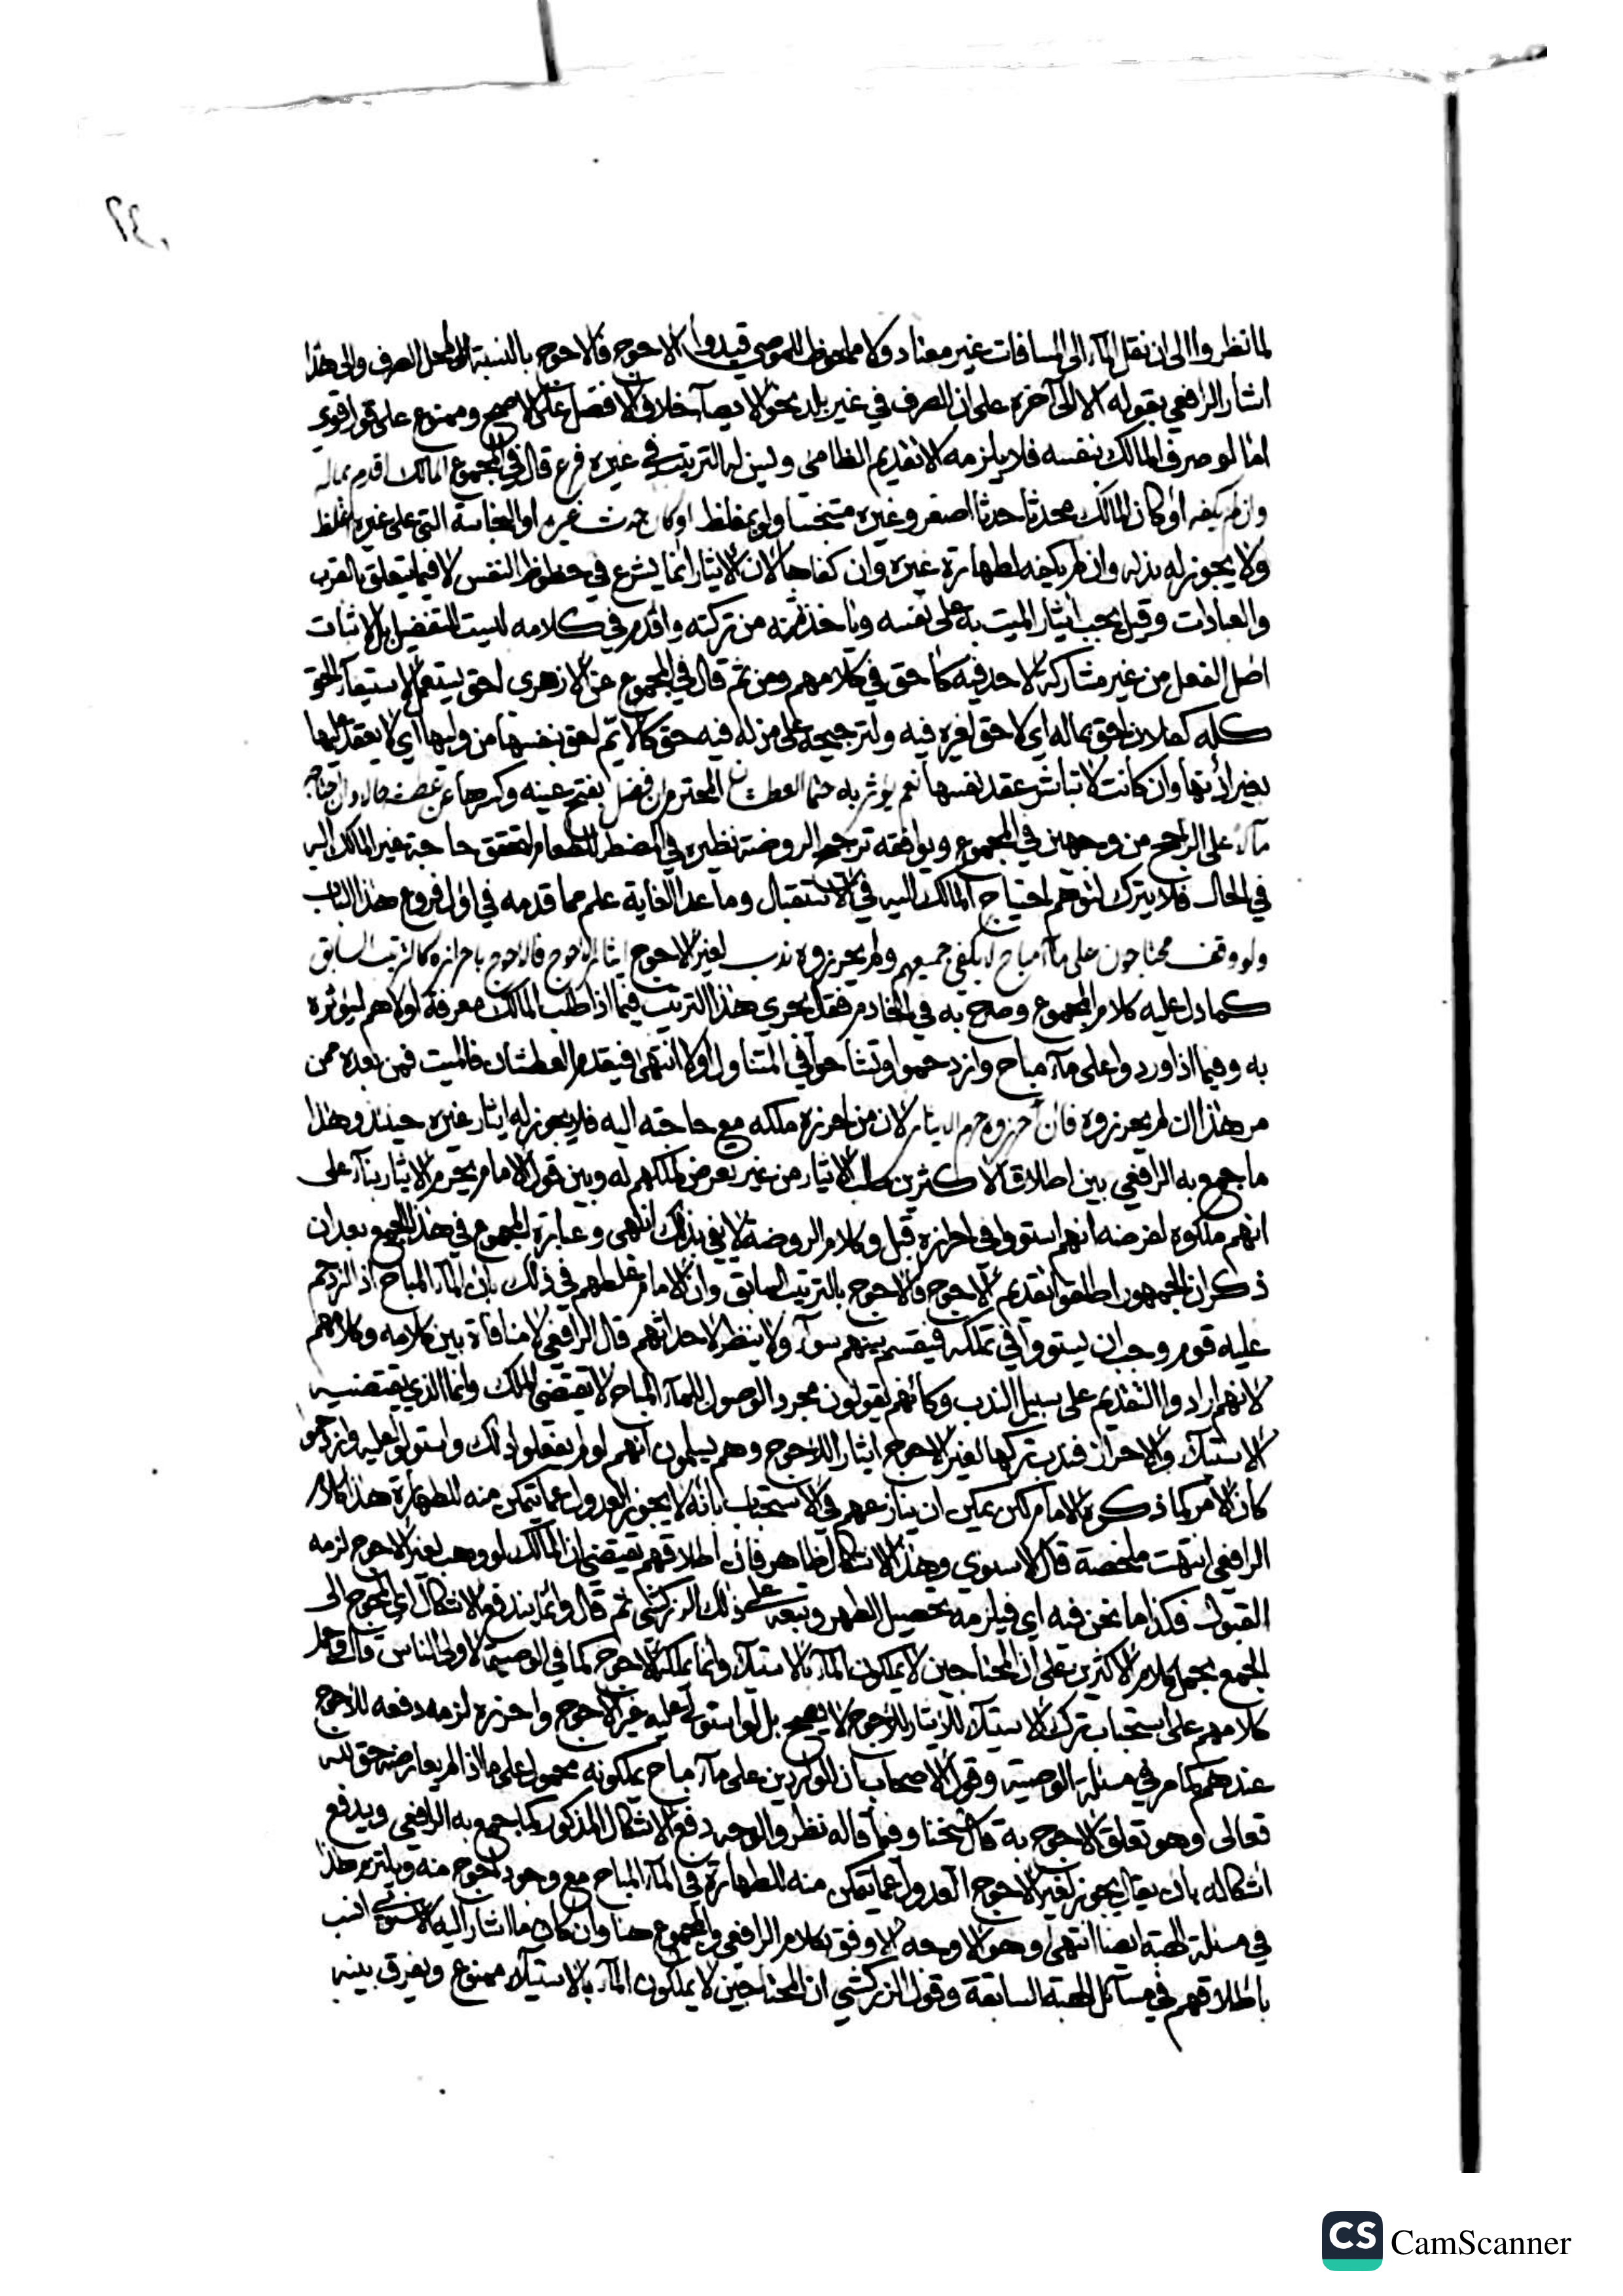 لما نظروا الى ان نقل المآء الى المسافات غير معتاد ولا ملحوظ للموصي قيدوا الاحوج فالاحوج بالنسبة الى محل الصرف والى هذا
اشار الرافعي بقوله الا الى آخره على ان الصرف في غير بلد نحو الايصآء خلاف الافضل على الاصح وممنوع على قول قوي
امّا لو صرف المالك بنفسه فلا يلزمه الا تقديم الظامئ وليس له الترتيب في غيره فرع قال في المجموع المالك اقدم بماله
وان لم يكفه او كان المالك محدثا حدثا اصغر وغيره متنجسا ولو بمغلظ او كان حدث غيره او النجاسة التي على غيره اغلظ
ولا يجوز له بذله وان لم يكفه لطهارة غيره وان كفاها لان الايثار انما يشرع في حظوظ النفس لا فيما يتعلق بالقرب
والعبادات وقيل يجب ايثار الميت به على نفسه وياخذ ثمنه من تركته واقدم في كلامه ليست للتفضيل بل لاثبات
اصل الفعل من غير مشاركة لاحد فيه كاحق في كلامهم ومن ثم قال في المجموع عن الازهري احق يستعمل لاستيعآب الحق
كله كفلان احق بماله اي لا حق لغيره فيه ولترجيحه على من له فيه حق كالايم احق بنفسها من وليها اي لا يعقد عليها
بغير اذنها وان كانت لا تباشر عقد نفسها نعم يؤثر به حتما العطشان المحترم ان فضل بفتح عينه وكسرها عن عطشه حالا وان احتاجه
مآلا على الراجح من وجهين في المجموع ويوافقه ترجيح الروضة نظيره في المضطر للطعام لتحقق حاجة غير المالك اليه
في الحال فلا يترك لتوهم احتياج المالك اليه في الاستقبال وما عدا الغاية علم مما قدمه في اول فروع هذا الباب
ولو وقف محتاجون على مآء مباح لا يكفي جميعهم ولم يحرزوه ندب لغير الاحوج ايثار الاحوج فالاحوج باحرازه كالترتيب السابق
كما دل عليه كلام المجموع وصرح به في الخادم فقال يجري هذا الترتيب فيما اذا طلب المالك معرفة اولاهم ليؤثره
به وفيما اذا وردوا على مآء مباح وازدحموا وتشاحوا في المتناول اولا انتهى فيقدم العطشان فالميت فمن بعده ممن
مر هذا ان لم يحرزوه فان احرزوه حرم الايثار لان من احرزه ملكه مع حاجته اليه فلا يجوز له ايثار غيره حينئذ وهذا
ما جمع به الرافعي بين اطلاق الاكثرين طلب الايثار من غير تعرض لملكهم له وبين قول الامام يحرم الايثار بنآء على
انهم ملكوه لفرضه انهم استووا في احرازه قيل وكلام الروضة لا يفي بذلك انتهى وعبارة المجموع في هذا الجمع بعد ان
ذكر ان الجمهور اطلقوا تقديم الاحوج فالاحوج بالترتيب السابق وان الامام غلطهم في ذلك بان المآء المباح اذا ازدحم
عليه قوم وجب ان يستووا في تملكه فيقسم بينهم سوآء ولا ينظر لاحداثهم قال الرافعي لا منافاة بين كلامه وكلامهم
لانهم ارادوا التقديم على سبيل الندب وكانهم يقولون مجرد الوصول للمآء المباح لا يقتضي الملك وانما الذي يقتضيه
الاستيلآء والاحراز فندب تركها لغير الاحوج ايثارا للاحوج وهم يسلمون انهم لو لم يفعلوا ذلك واستولوا عليه وازدحموا
كان الامر كما ذكره الامام لكن يمكن ان ينازعهم في الاستحباب بانه لا يجوز العدول عما يتمكن منه للطهارة هذا كلام
الرافعي انتهت ملخصة قال الاسنوي وهذا الاشكال ظاهر فان اطلاقهم يقتضي ان المالك لو وهب لغير الاحوج لزمه
القبول فكذا ما نحن فيه اي فيلزمه تحصيل الطهر وتبعه على ذلك الزركشي ثم قال وانما يندفع الاشكال اي المحوج الى
الجمع بحمل كلام الاكثرين على ان المحتاجين لا يملكون المآء بالاستيلآء وانما يملكه الاحوج كما في الوصية لاولى الناس قال وحمل
كلامهم على استحباب ترك الاستيلآء للايثار للاحوج لا يصح بل لو استولى عليه غير الاحوج واحرزه لزمه دفعه للاحوج
عندهم كما مر في مسئلة الوصية وقول الاصحاب ان الواردين على مآء مباح يملكونه محمول على ما اذا لم يعارضه حق لله
تعالى وهو تعلق الاحوج به قال شيخنا وفيما قاله نظر والوجه دفع الاشكال المذكور كما جمع به الرافعي ويدفع
اشكاله بان يقال يجوز لغير الاحوج العدول عما يتمكن منه للطهارة في المآء المباح مع وجود احوج منه ويلتزم هذا
في مسئلة الهبة ايضا انتهى وهو الاوجه الاوفق بكلام الرافعي والمجموع هنا وان كان ما اشار اليه الاسنوي انسب
باطلاقهم في مسآئل الهبة السابقة وقول الزركشي ان المحتاجين لا يملكون المآء بالاستيلآء ممنوع ويفرق بينه
CamScanner